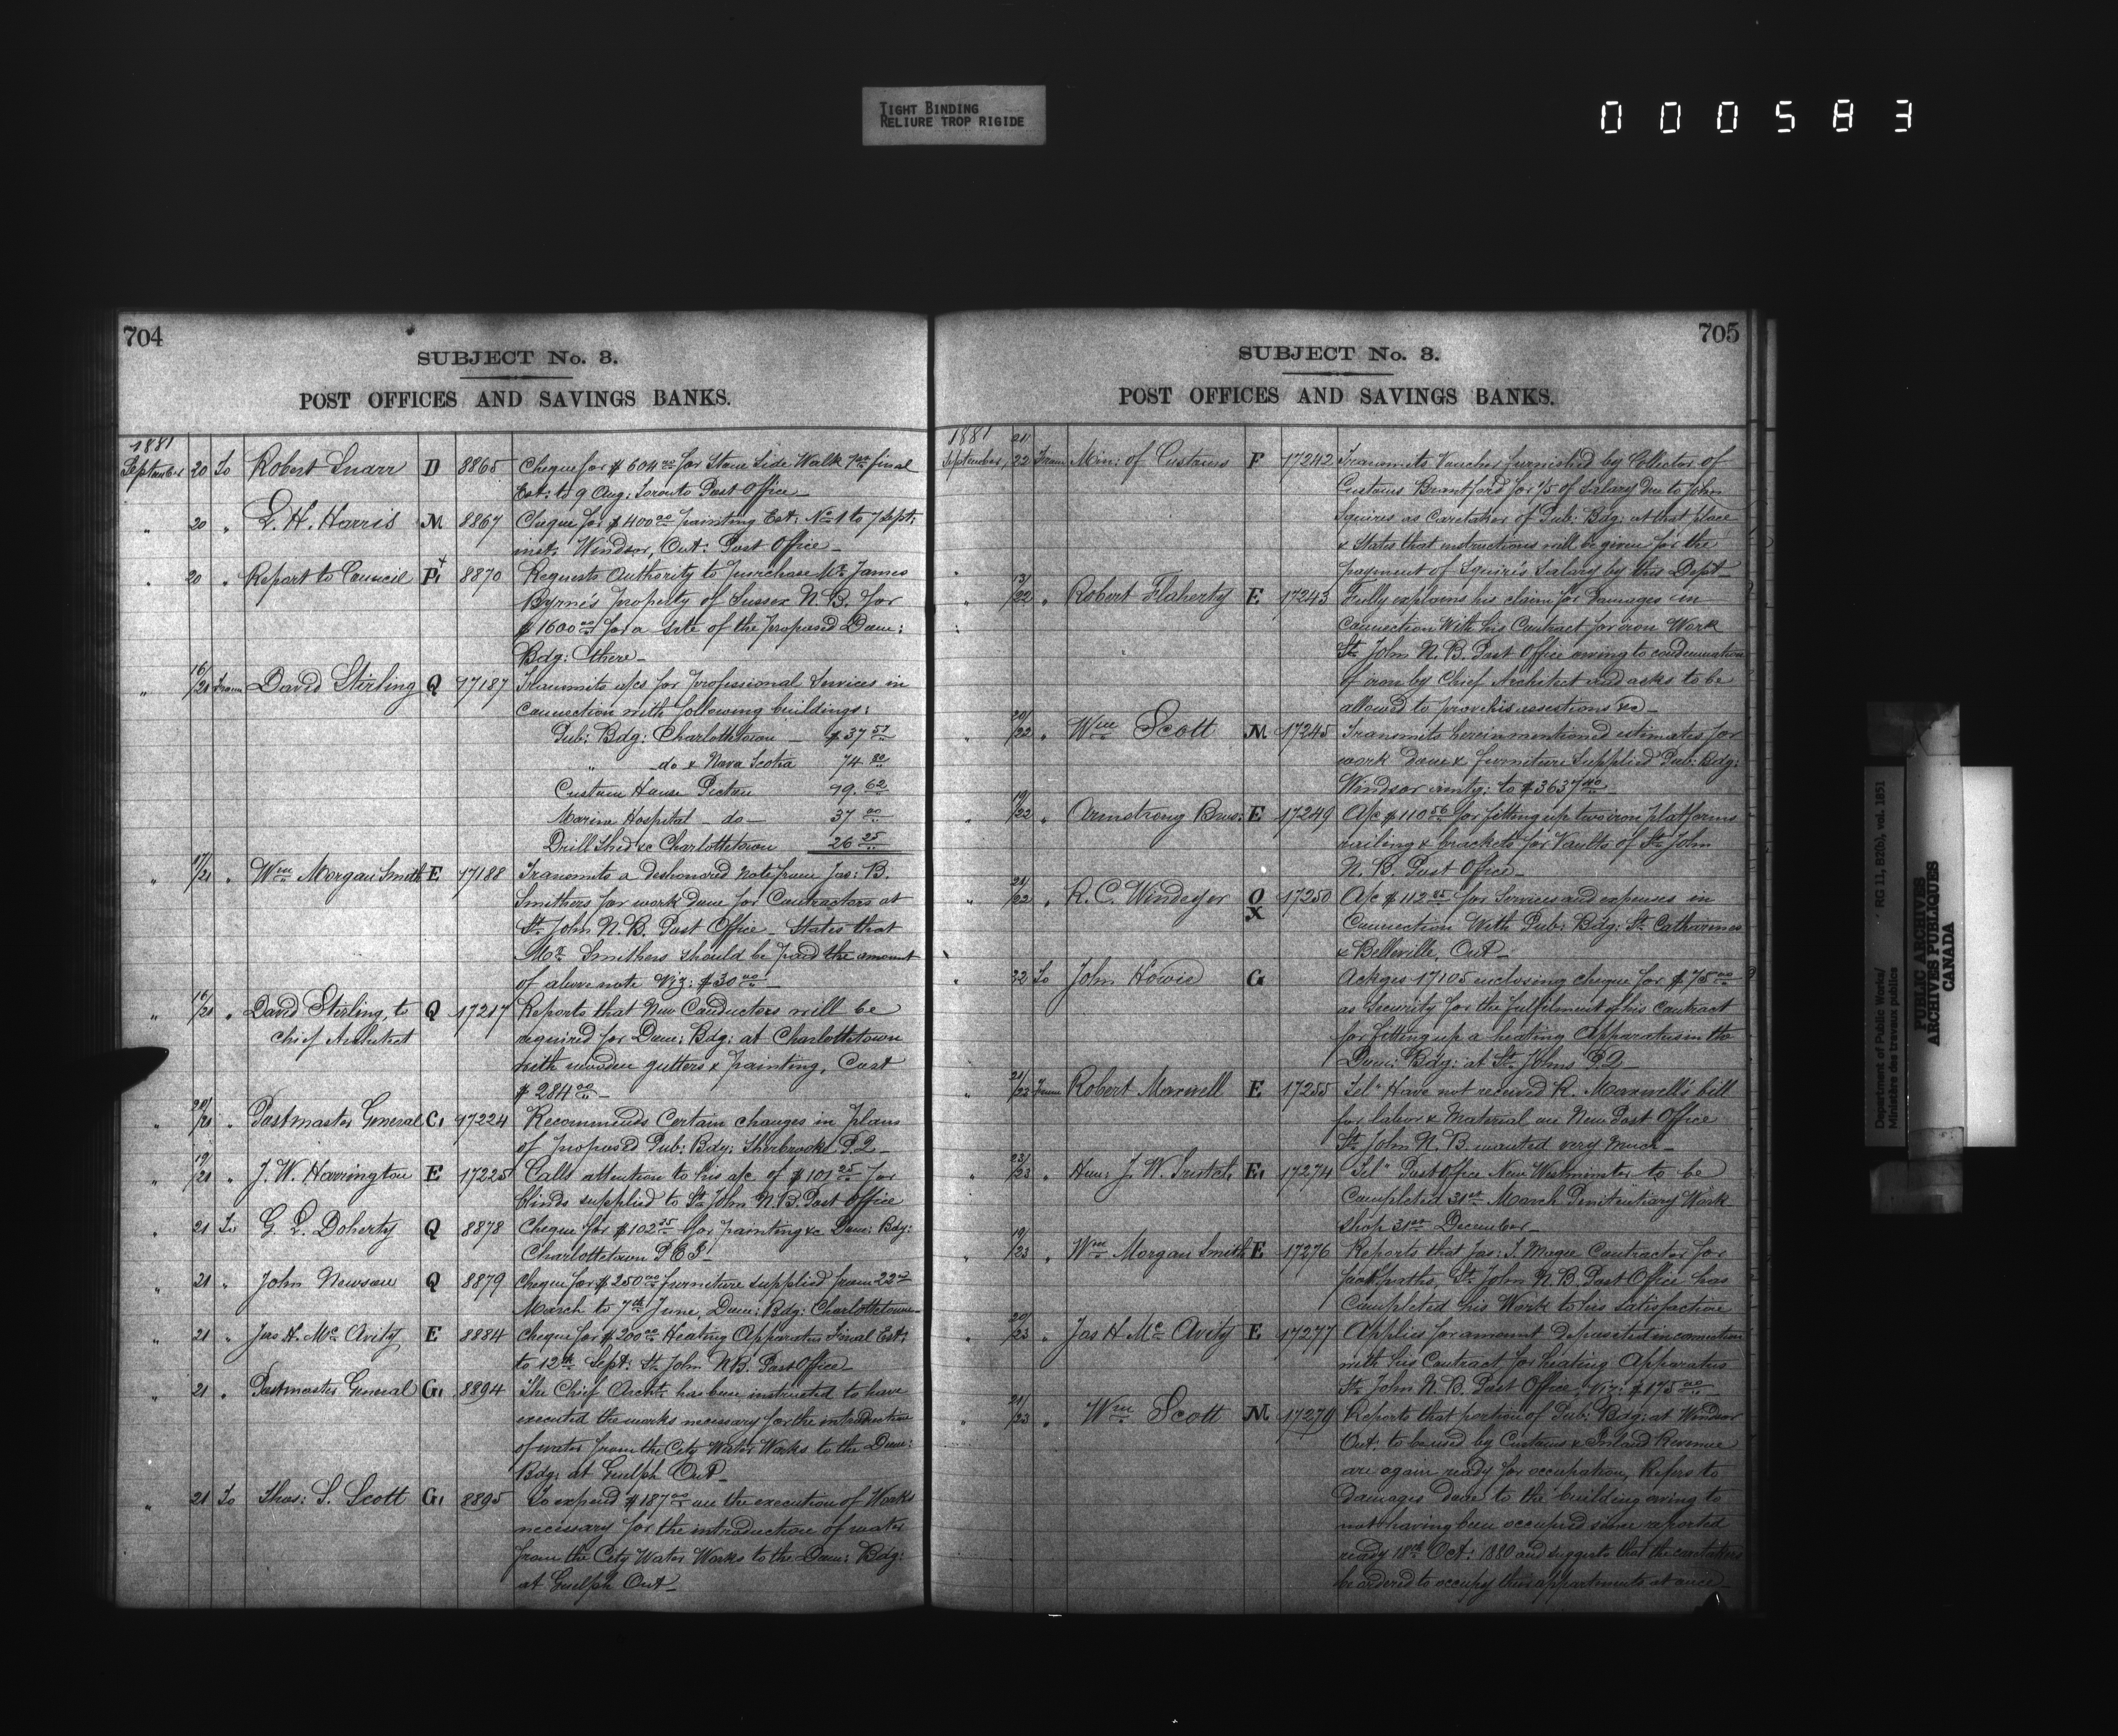 TIGHT BINDING
RELIURE TROP RIGIDE
000583
704
SUBJECT No. 3.
POST OFFICES AND SAVINGS BANKS.
1881
September 20 To Robert Snarr D 8865 Cheque for $604.00 for Stone Side Walk 7th final
Est: to 9 Aug: Toronto Post Office
" 20 " E. H. Harris M 8867 Cheque for $400.00 painting Est: No 1 to 7 Sept:
inst. Windsor, Ont: Post Office
" 20 " Report to Council P1 8870 Requests Authority to purchase Mr James
Byrne's property of Sussex N. B. for
$1600.00 for a site of the proposed Dom:
Bdg: there
" 16/20 From David Sterling Q 17187 Transmits a/cs for professional Services in
Connection with following buildings:
Pub: Bdg: Charlottetown $37.57
" do & Nova Scotia 74.80
Custom House Pictou 79.62
Marine Hospital do 37.00
Drill Shed &c Charlottetown 26.25
" 17/21 " Wm Morgan Smith E 17188 Transmits a Dishonored Note from Jas: B.
Smithers for work done for Contractors at
St. John N. B. Post Office States that
Mr Smithers should be paid the amount
of above note Viz: $30.00
" 16/21 " David Sterling, to Q 17217 Reports that New Conductors will be
Chief Architect required for Dom: Bdg: at Charlottetown
with wooden gutters & painting, Cost
$284.00
" 20/21 " Postmaster General C1 17224 Recommends Certain changes in plans
of proposed Pub: Bdg: Sherbrooke P.Q.
" 19/21 " J. W. Harrington E 17225 Calls attention to his a/c of $101.25 for
blinds supplied to St. John N.B. Post Office
" 21 To G. L. Doherty Q 8878 Cheque for $102.35 for painting &c Dom: Bdg:
Charlottetown P E I
" 21 " John Newson Q 8879 Cheque for $250.00 furniture supplied from 22nd
March to 7th June, Dom: Bdg: Charlottetown
" 21 " Jas H. Mc Avity E 8884 Cheque for $200.00 Heating Apparatus Final Est:
to 12th Sept: St. John N.B. Post Office
" 21 " Postmaster General G1 8894 The Chief Archt. has been instructed to have
executed the works necessary for the introduction
of water from the City Water Works to the Dom:
Bdg: at Guelph Ont
" 21 To Thos: S. Scott G1 8895 To expend $187.00 on the execution of Works
necessary for the introduction of water
from the City Water Works to the Dom: Bdg:
at Guelph Ont
705
SUBJECT No. 3.
POST OFFICES AND SAVINGS BANKS.
1881
September 21/22 From Min: of Customs F 17242 Transmits Voucher furnished by Collector of
Customs Brantford for 1/5 of Salary due to John
Squires as Caretaker of Pub: Bdg: at that place
& States that instructions will be given for the
payment of Squire's Salary by this Dept
" 13/22 " Robert Flaherty E 17243 Fully explains his claim for Damages in
Connection With his Contract for iron Work
St. John N. B. Post Office owing to condemnation
of iron by Chief Architect and asks to be
allowed to prove his assertions &c
" 20/22 " Wm Scott M 17245 Transmits hereinmentioned estimates for
work done & furniture Supplied Pub: Bdg:
Windsor amtg: to $3637.40
" 19/22 " Armstrong Bros: E 17249 A/c $110.56 for fitting up two iron platforms
railing & brackets for Vaults of St. John
N. B. Post Office
" 21/22 " R. C. Windeyer O 17250 A/c $112.85 for Services and expenses in
X Connection With Pub: Bdg: St. Catharines
& Belleville, Ont
" 22 To John Howie G Ackges 17105 enclosing cheque for $75.00
as Security for the fulfilment of his Contract
for fitting up a heating Apparatus in the
Dom: Bdg: at St. Johns P.Q.
" 21/23 From Robert Maxwell E 17255 Tel" Have not received R. Maxwell's bill
for labor & Material on New Post Office
St. John N. B. wanted very much
" 23/23 " Hon: J. W. Trutch, E1 17274 Tel" Post Office New Westminster to be
Completed 31st March Penitentiary Work
Shop 31st December
" 19/23 " Wm Morgan Smith E 17276 Reports that Jas: S. Magee Contractor for
footpaths, St. John N. B. Post Office has
Completed his Work to his satisfaction
" 20/23 " Jas H Mc Avity E 17277 Applies for amount deposited in connection
with his Contract for heating Apparatus
St. John N. B. Post Office. Viz: $175.00
" 21/23 " Wm Scott M 17279 Reports that portion of Pub: Bdg: at Windsor
Ont: to be used by Customs & Inland Revenue
are again ready for occupation, Refers to
Damages done to the building owing to
not having been occupied since reported
ready 18th Oct: 1880 and suggests that the caretaker
be ordered to occupy their appartments at once
Department of Public Works/ RG 11, B2(b), vol. 1851
Ministère des travaux publics
PUBLIC ARCHIVES
ARCHIVES PUBLIQUES
CANADA